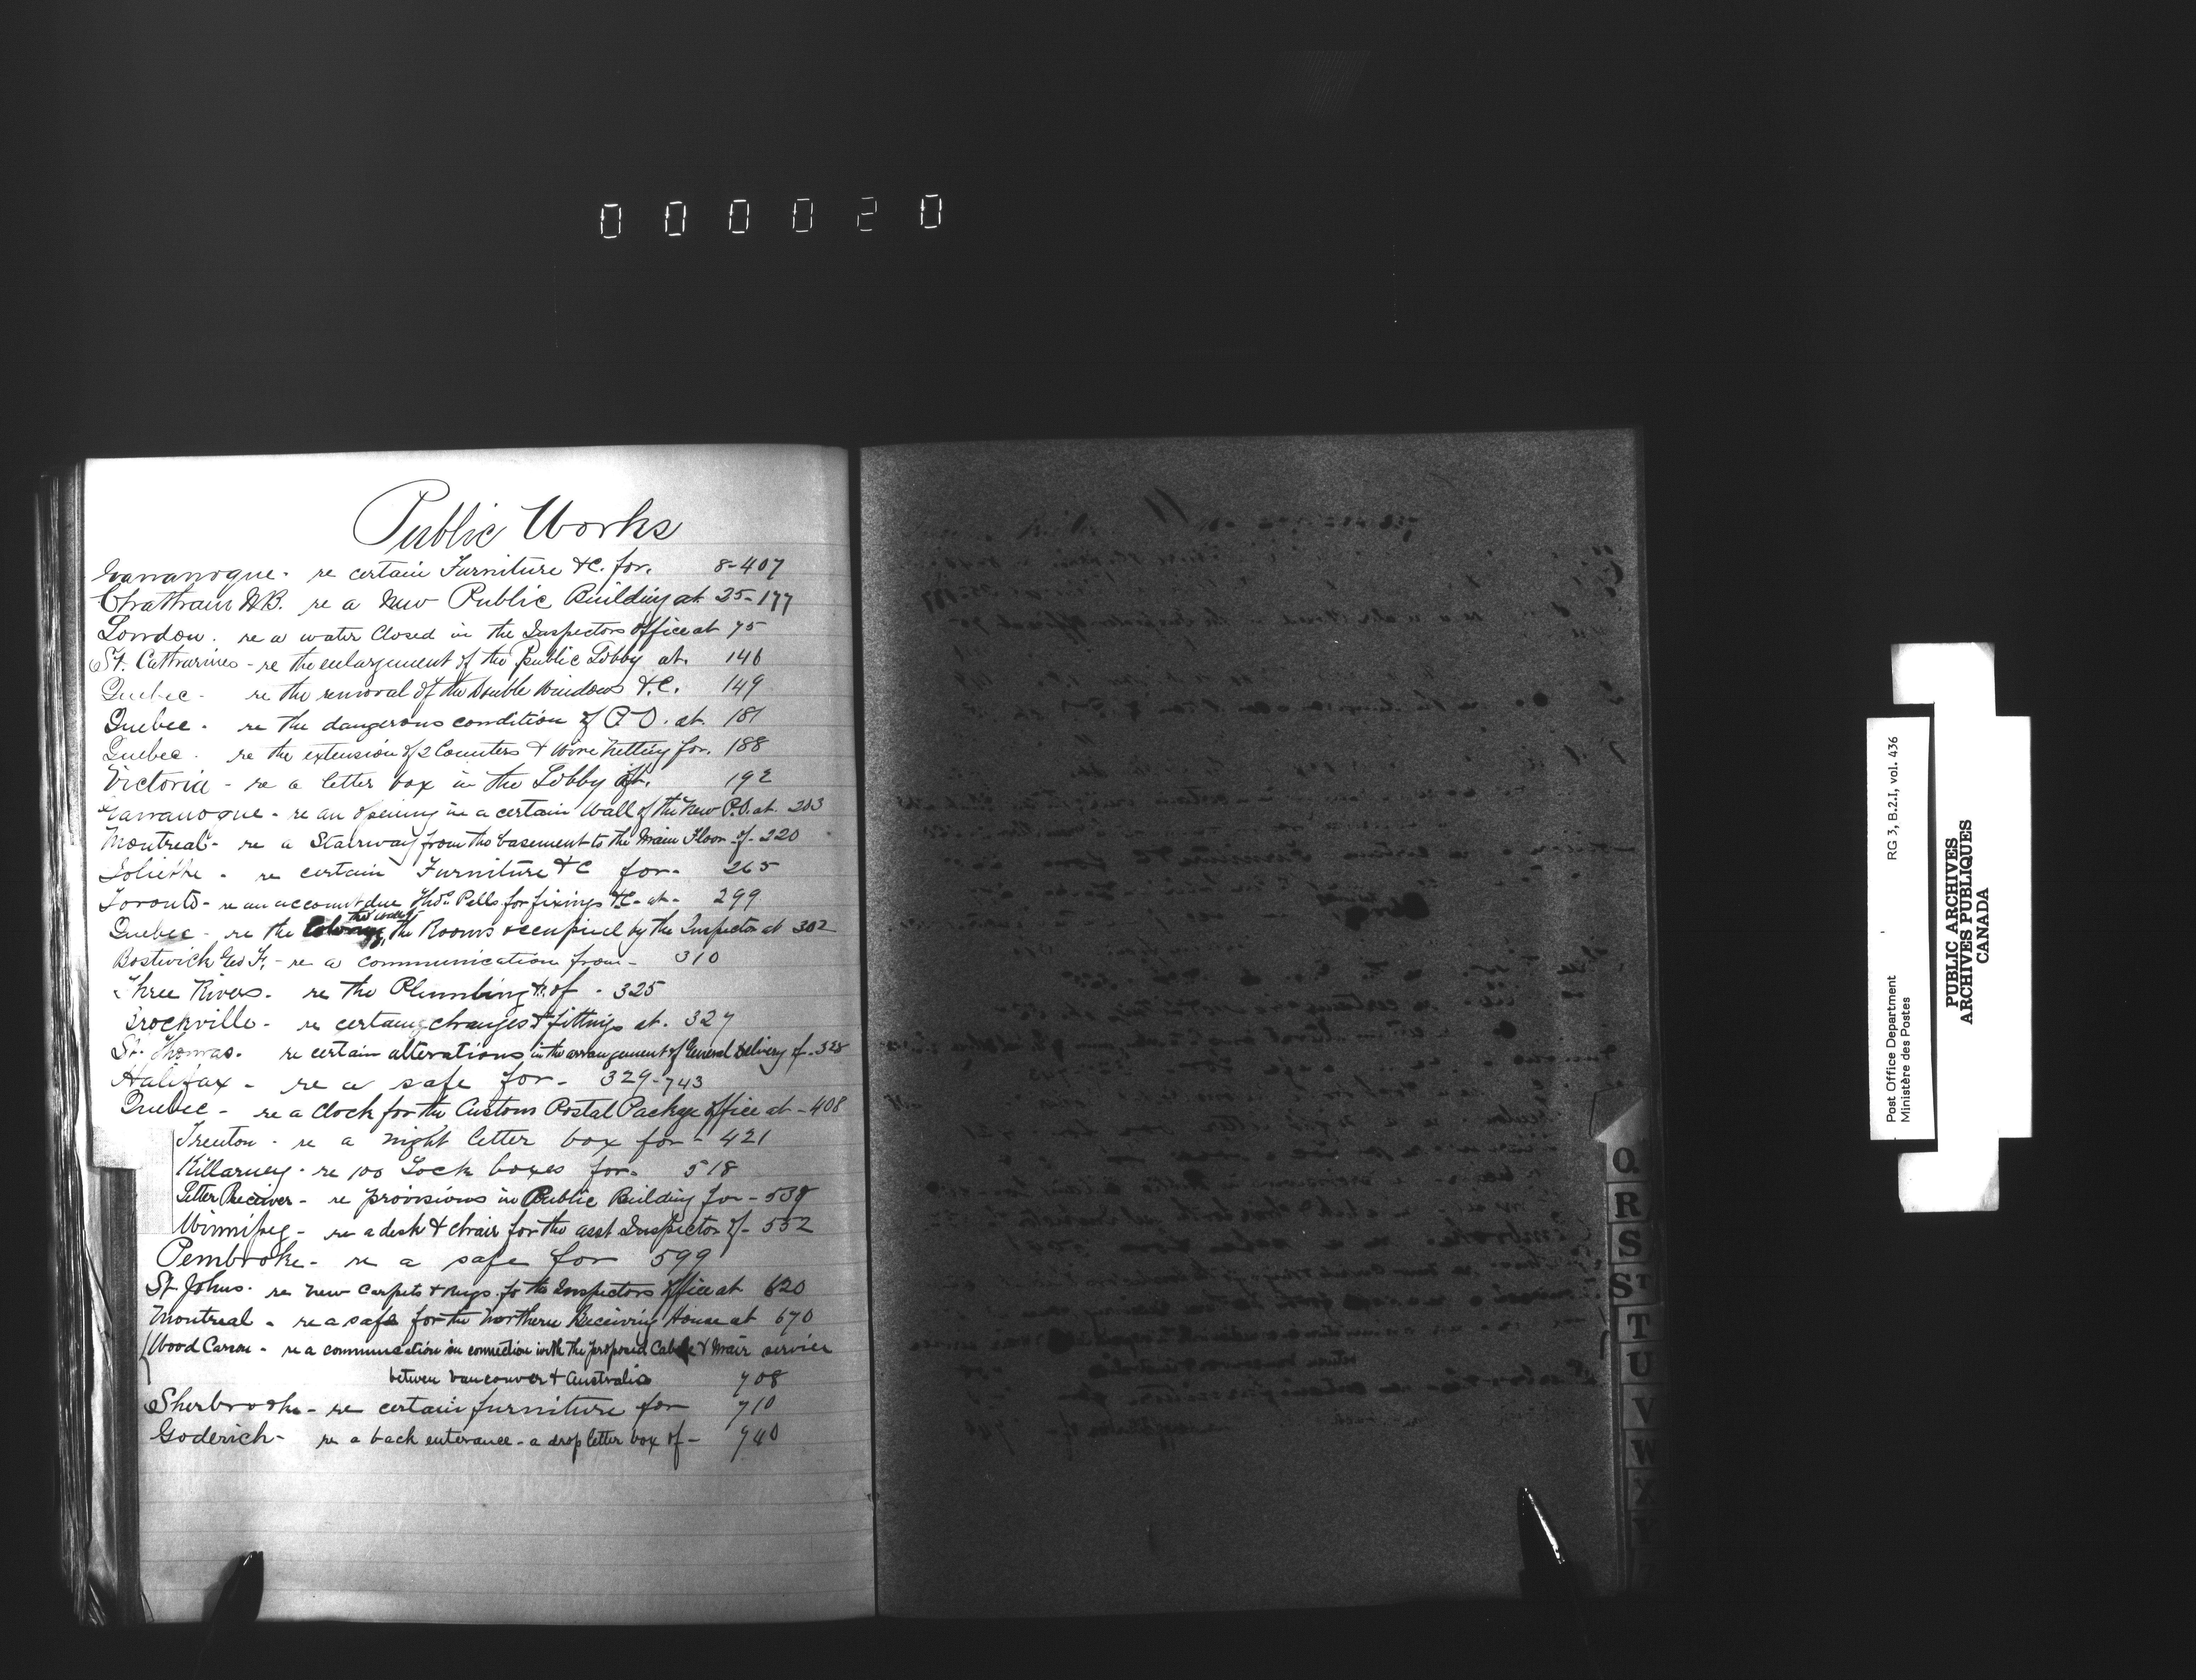 000020
Public Works
Gananoque - re certain Furniture &C. for. 8-407
Chatham N.B. re a New Public Building at 25-177
London. re a water Closed in the Inspectors Office at 75
St. Catharines - re the enlargement of the Public Lobby at. 146
Quebec - re the removal of the Double Windows &.C. 149
Quebec - re the dangerous condition of P.O. at. 181
Quebec - re the extension of 2 Counters & Wire Netting for. 188
Victoria - re a letter box in the Lobby of. 192
Gananoque - re an opening in a certain Wall of the New P.O. at. 203
Montreal - re a Stairway from the basement to the Main Floor of - 220
Joliette - re certain Furniture &C for - 265
Toronto - re an account due Thos. Pells for fixings &C - at - 299
Quebec - re the the walls the Rooms occupied by the Inspector at 302
Bostwick Geo F. - re a communication from - 310
Three Rivers. re the Plumbing &c of - 325
Brockville - re certain changes & fittings at. 327
St. Thomas. re certain alterations in the arrangement of General Delivery of - 328
Halifax - re a safe for - 329-743
Quebec - re a Clock for the Customs Postal Package Office at - 408
Trenton - re a night letter box for - 421
Killarney - re 100 Lock boxes for. 518
Letter Receiver - re provisions in Public Building for - 538
Winnipeg - re a desk & chair for the asst Inspector of - 552
Pembroke - re a safe for 599
St Johns. re New Carpets & rugs for the Inspectors Office at 620
Montreal - re a safe for the Northern Receiving House at 670
Wood Carson - re a communication in connection with the proposed Cable & Mair service
between Vancouver & Australia 708
Sherbrooke - re certain furniture for 710
Goderich - re a back enterance - a drop letter box of - 740
Q
R
S
ST
T
U
V
W
X
Y
Post Office Department RG 3, B.2.I, vol. 436
Ministère des Postes
PUBLIC ARCHIVES
ARCHIVES PUBLIQUES
CANADA